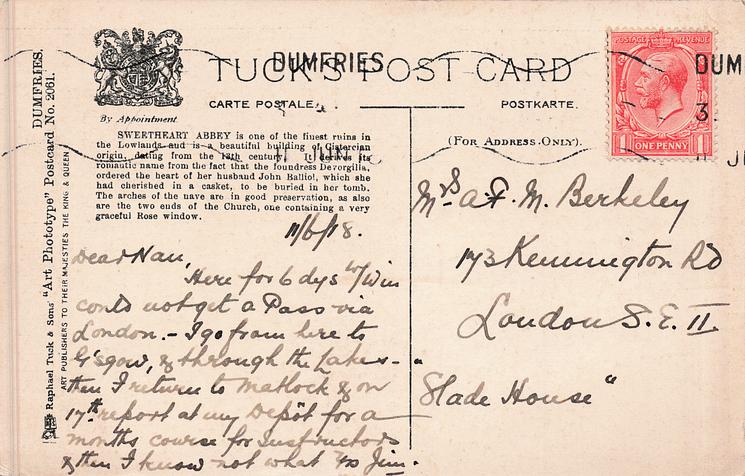 DUMFRIES
TUCK'S POST CARD
CARTE POSTALE.
POSTKARTE.
By Appointment
(For Address Only).
SWEETHEART ABBEY is one of the finest ruins in
the Lowlands and is a beautiful building of Cistercian
origin, dating from the 13th century. It derives its
romantic name from the fact that the foundress Devorgilla,
ordered the heart of her husband John Balliol, which she
had cherished in a casket, to be buried in her tomb.
The arches of the nave are in good preservation, as also
are the two ends of the Church, one containing a very
graceful Rose window.
DUMFRIES.
Raphael Tuck & Sons' "Art Phototype" Postcard No. 2061.
ART PUBLISHERS TO THEIR MAJESTIES THE KING & QUEEN
11/6/18.
Dear Nan,
Here for 6 dys w/ Win
could not get a Pass via
London. - I go from here to
G'sgow, & through the Lakes -
then I return to Matlock & on
17th report at my Depôt for a
months course for Instructors
& then I know not what Jim.
Mrs A. F. M. Berkeley
173 Kennington Rd
London S.E. 11.
"Slade House"
POSTAGE REVENUE
1 ONE PENNY 1
DUM
3.
JU